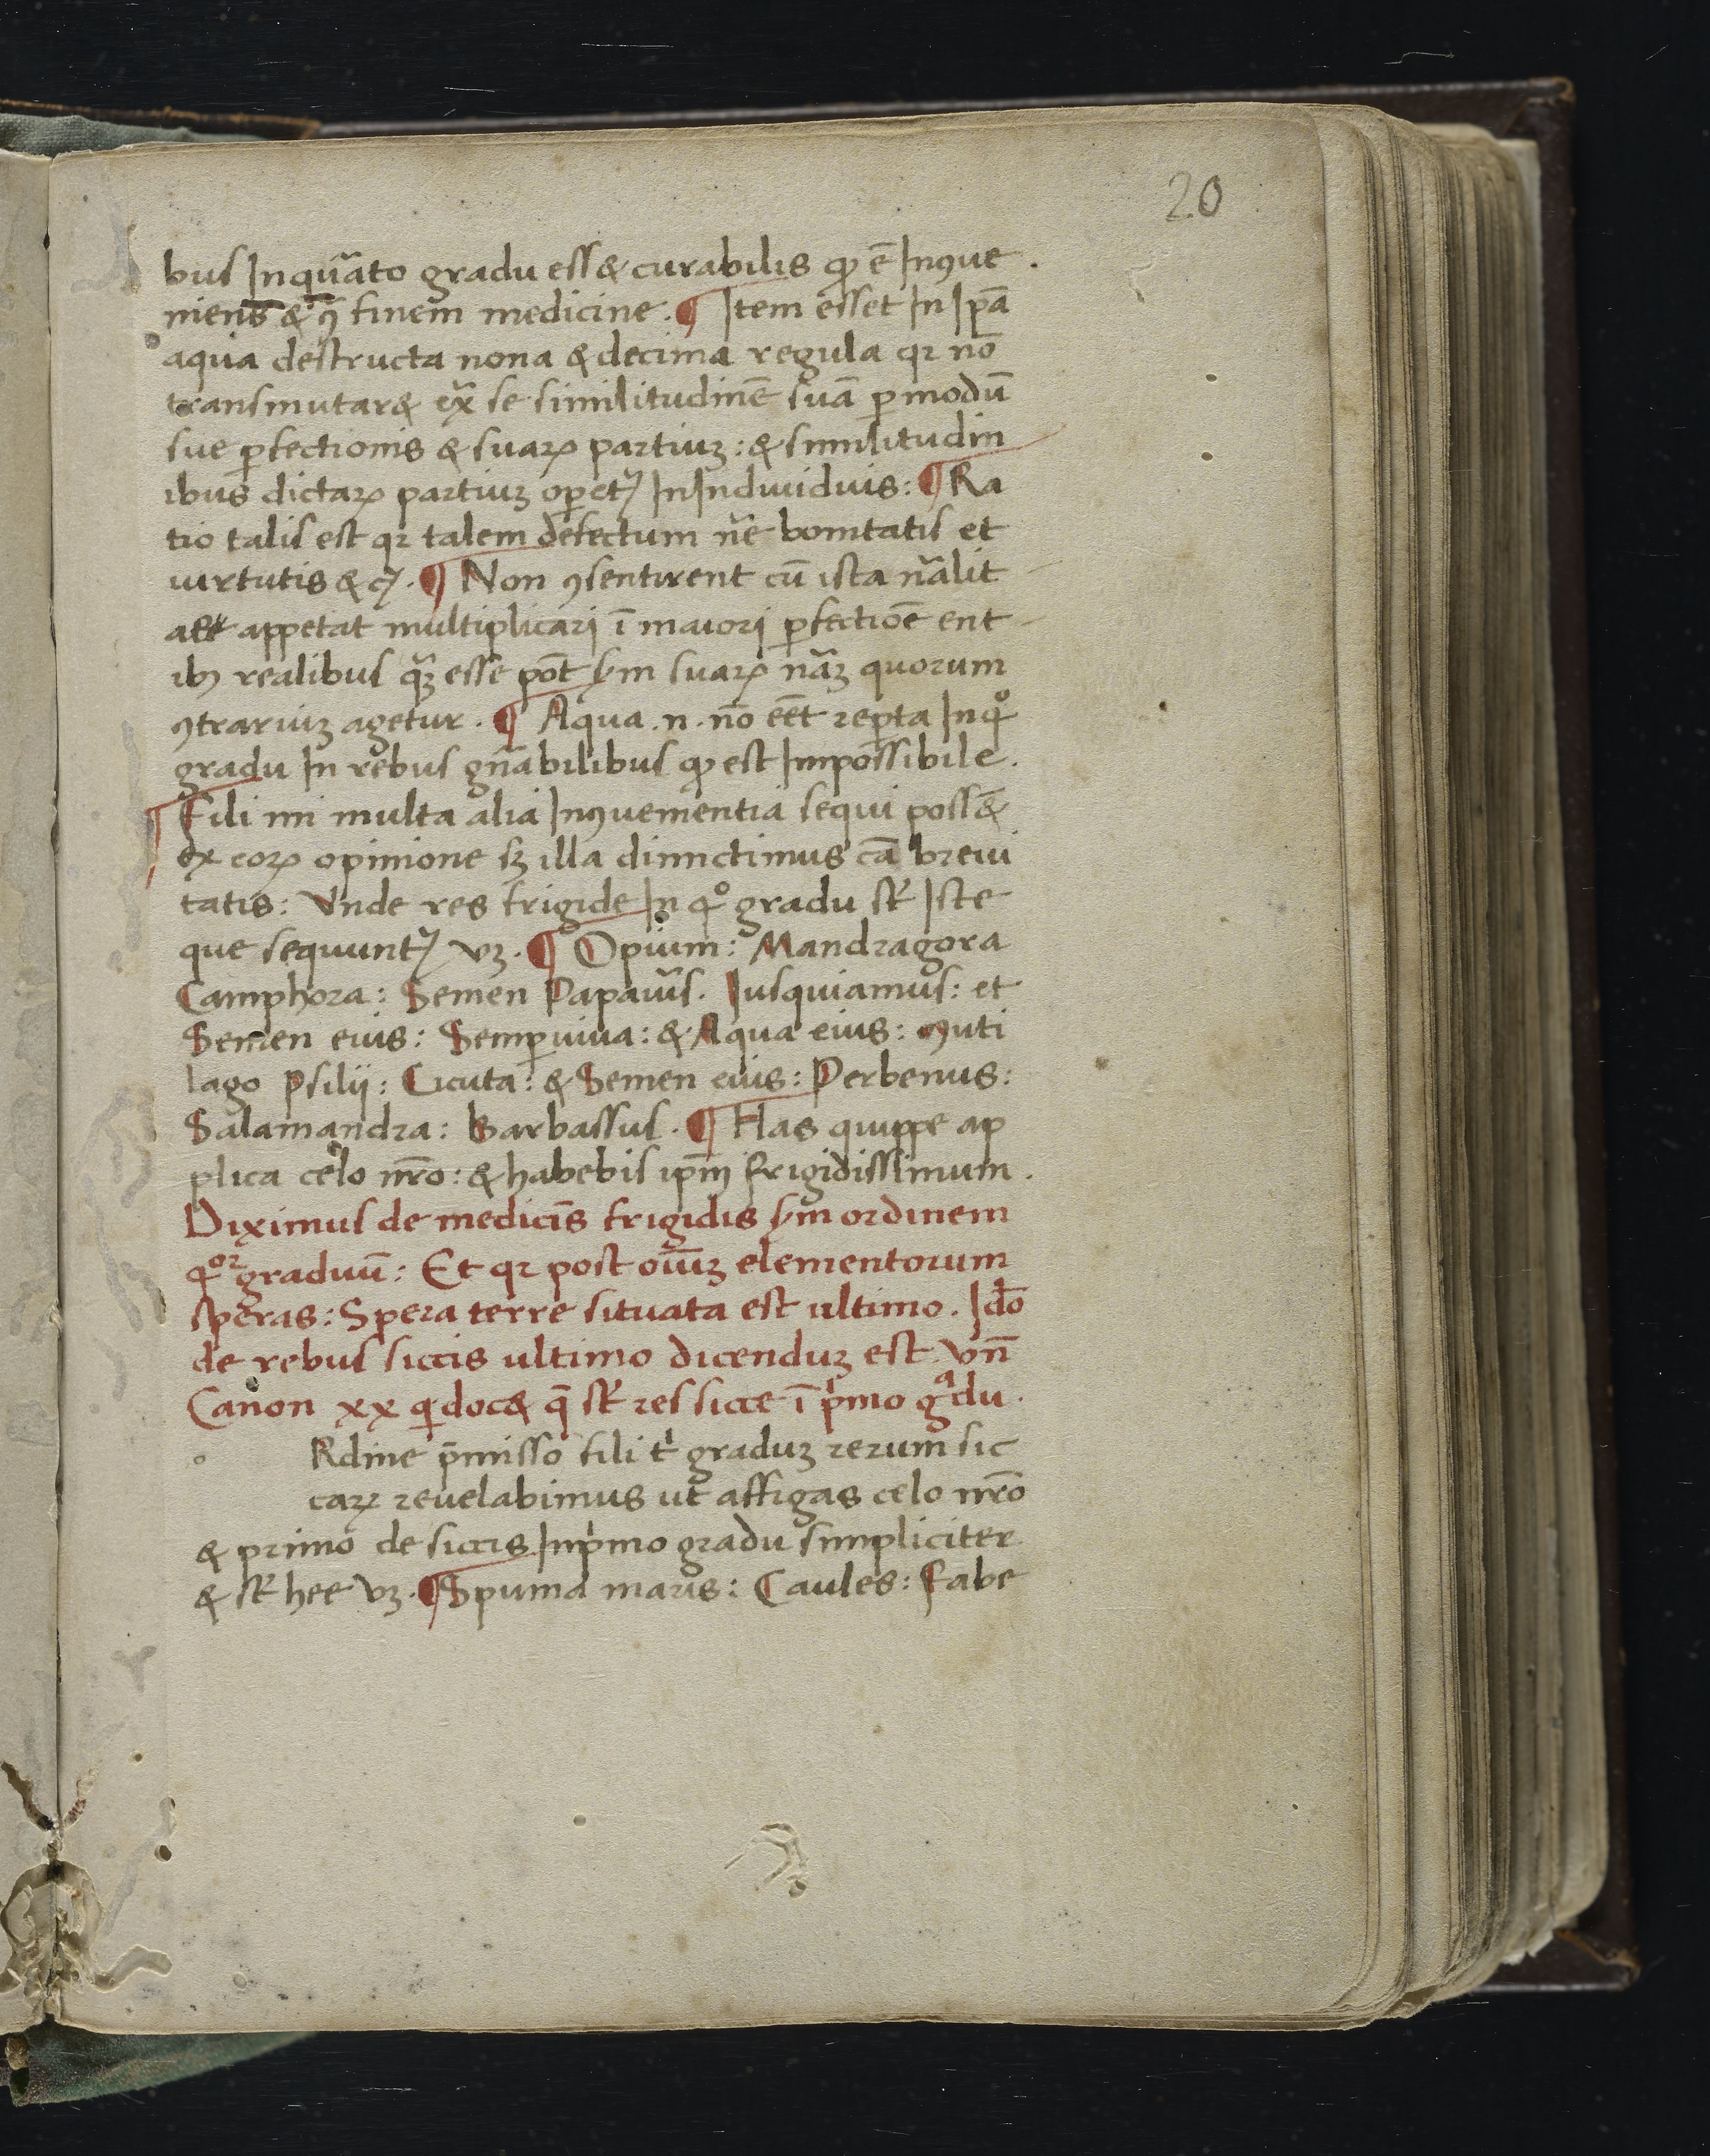 20
bus Inquãto gradu ess& curabilis qđ ẽ Inꝯue
niens & ꝯ̃ finem medicine. ¶ Item esset In Ip̃a
aqua destructa nona & decima regula qꝛ nõ
transmutar& ex̃ se similitudinẽ suã ꝑ modũ
sue ꝑfectionis & suaꝝ partiuꝫ: & similitudin
ibus dictaꝝ partiuꝫ oꝑetꝭ In Indiuiduis: ¶ Ra
tio talis est qꝛ talem defectum nr̃e bonitatis et
uirtutis & cꝭ. ¶ Non ꝯsentirent cũ ista nãlit
appetat multiplicari ĩ maiori ꝑfectiõe ent
ibꝰ realibus qꝫ̃ esse põt ẜm suaꝝ nãꝫ quorum
ꝯtrariuꝫ agetur. ¶ Aqua .n. nõ eẽt reꝑta In qͦ
gradu In rebus gñabilibus qđ est Impossibile.
¶ Fili mi multa alia Inꝯuenientia sequi poss&̃
ex eoꝝ opinione sꝫ illa dimictimus cã breui
tatis: Vnde res frigide In qͦ gradu st̃ Iste
que sequuntꝭ vꝫ. ¶ Opium: Mandragora
Camphora: Semen Papaũis. Iusquiamus: et
Semen eius: Semꝑuiua: & Aqua eius: Muti
lago Psilij: Cicuta: & Semen eius: Perbenus:
Salamandra: Barbassus. ¶ Has quippe ap
plica celo nr̃o: & habebis ip̃m frigidissimum.
Diximus de medicĩs frigidis ẜm ordinem
qͦꝛ graduũ: Et qꝛ post om̃iꝫ elementorum
speras: Spera terre situata est ultimo. Iđo
de rebus siccis ultimo dicenduꝫ est. vñ
Canon xx qui doc& q̃ st̃ res sicce ĩ pͥmo gͣdu.
o Rdine p̃misso fili tͥ graduꝫ rerum sic
caꝝ reuelabimus ut affigas celo nr̃o
& primo de siccis In pͥmo gradu simpliciter
& st̃ hee vꝫ. ¶ Spuma maris: Caules: Fabe